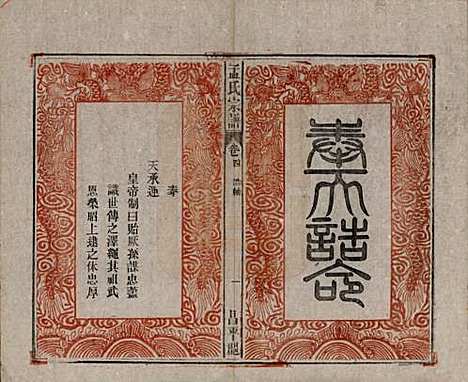 奉天誥命
氏宗譜
卷四 誥軸
一
奉
天承運
皇帝制曰貽厥孫謀忠藎
識世傳之澤繩其祖武
恩榮昭上逮之休忠厚